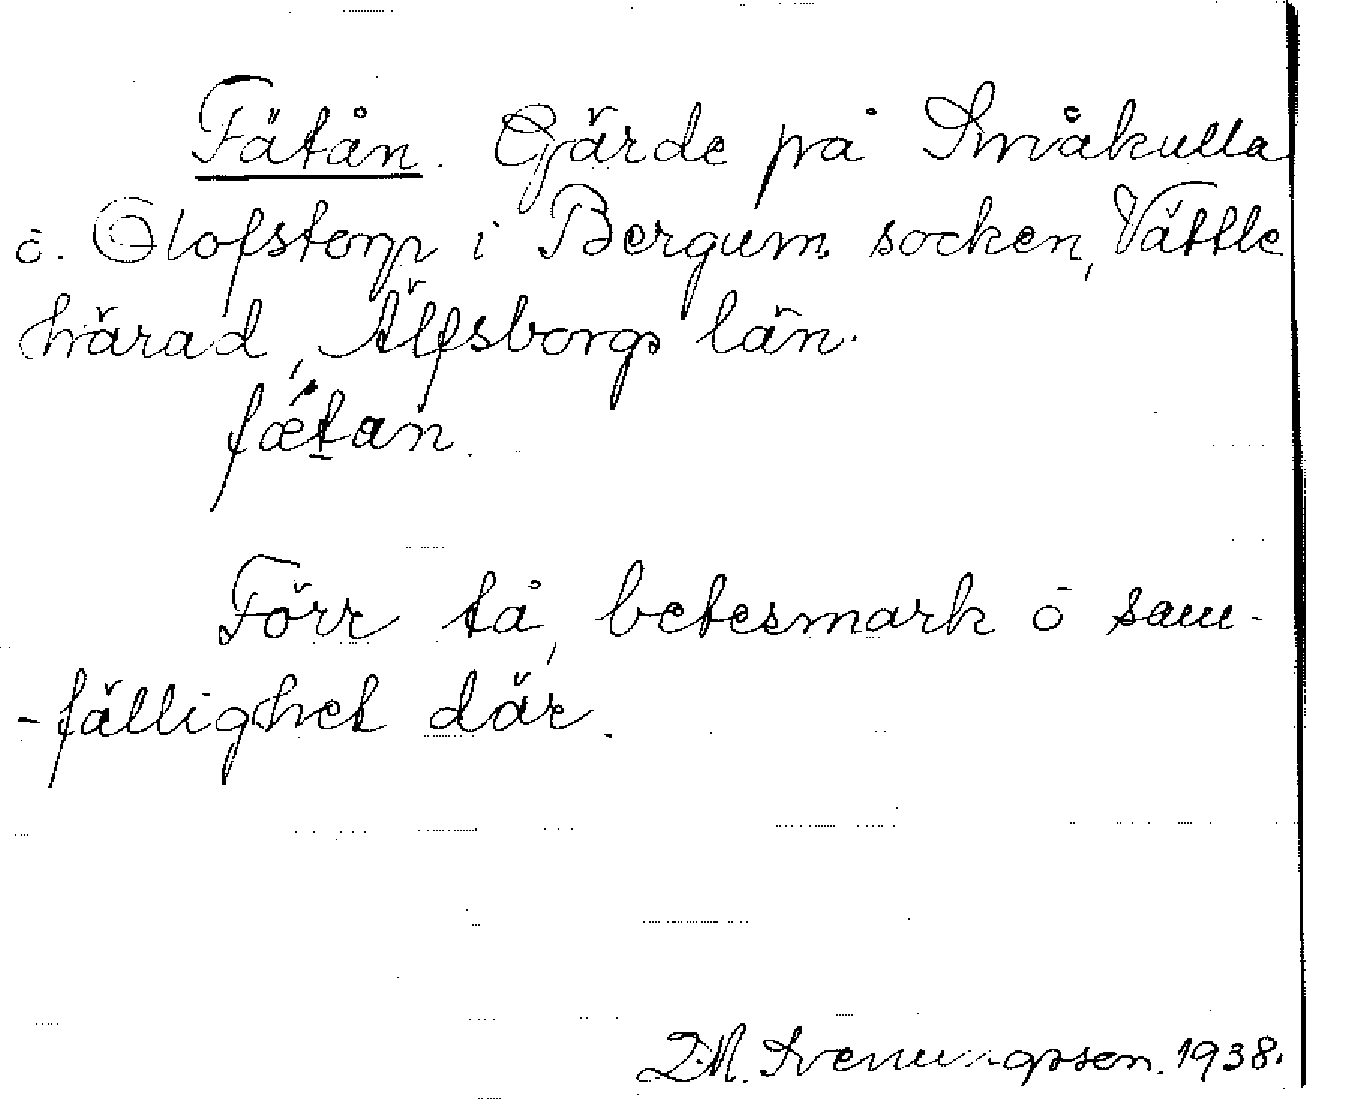 Fätån. Gärde på Småkulla
ö. Olofstorp i Bergum socken, Vättle
härad, Älfsborgs län.
fætan.
Förr tå, betesmark ö sam-
-fällighet där.
D.M. Svenungsson. 1938.